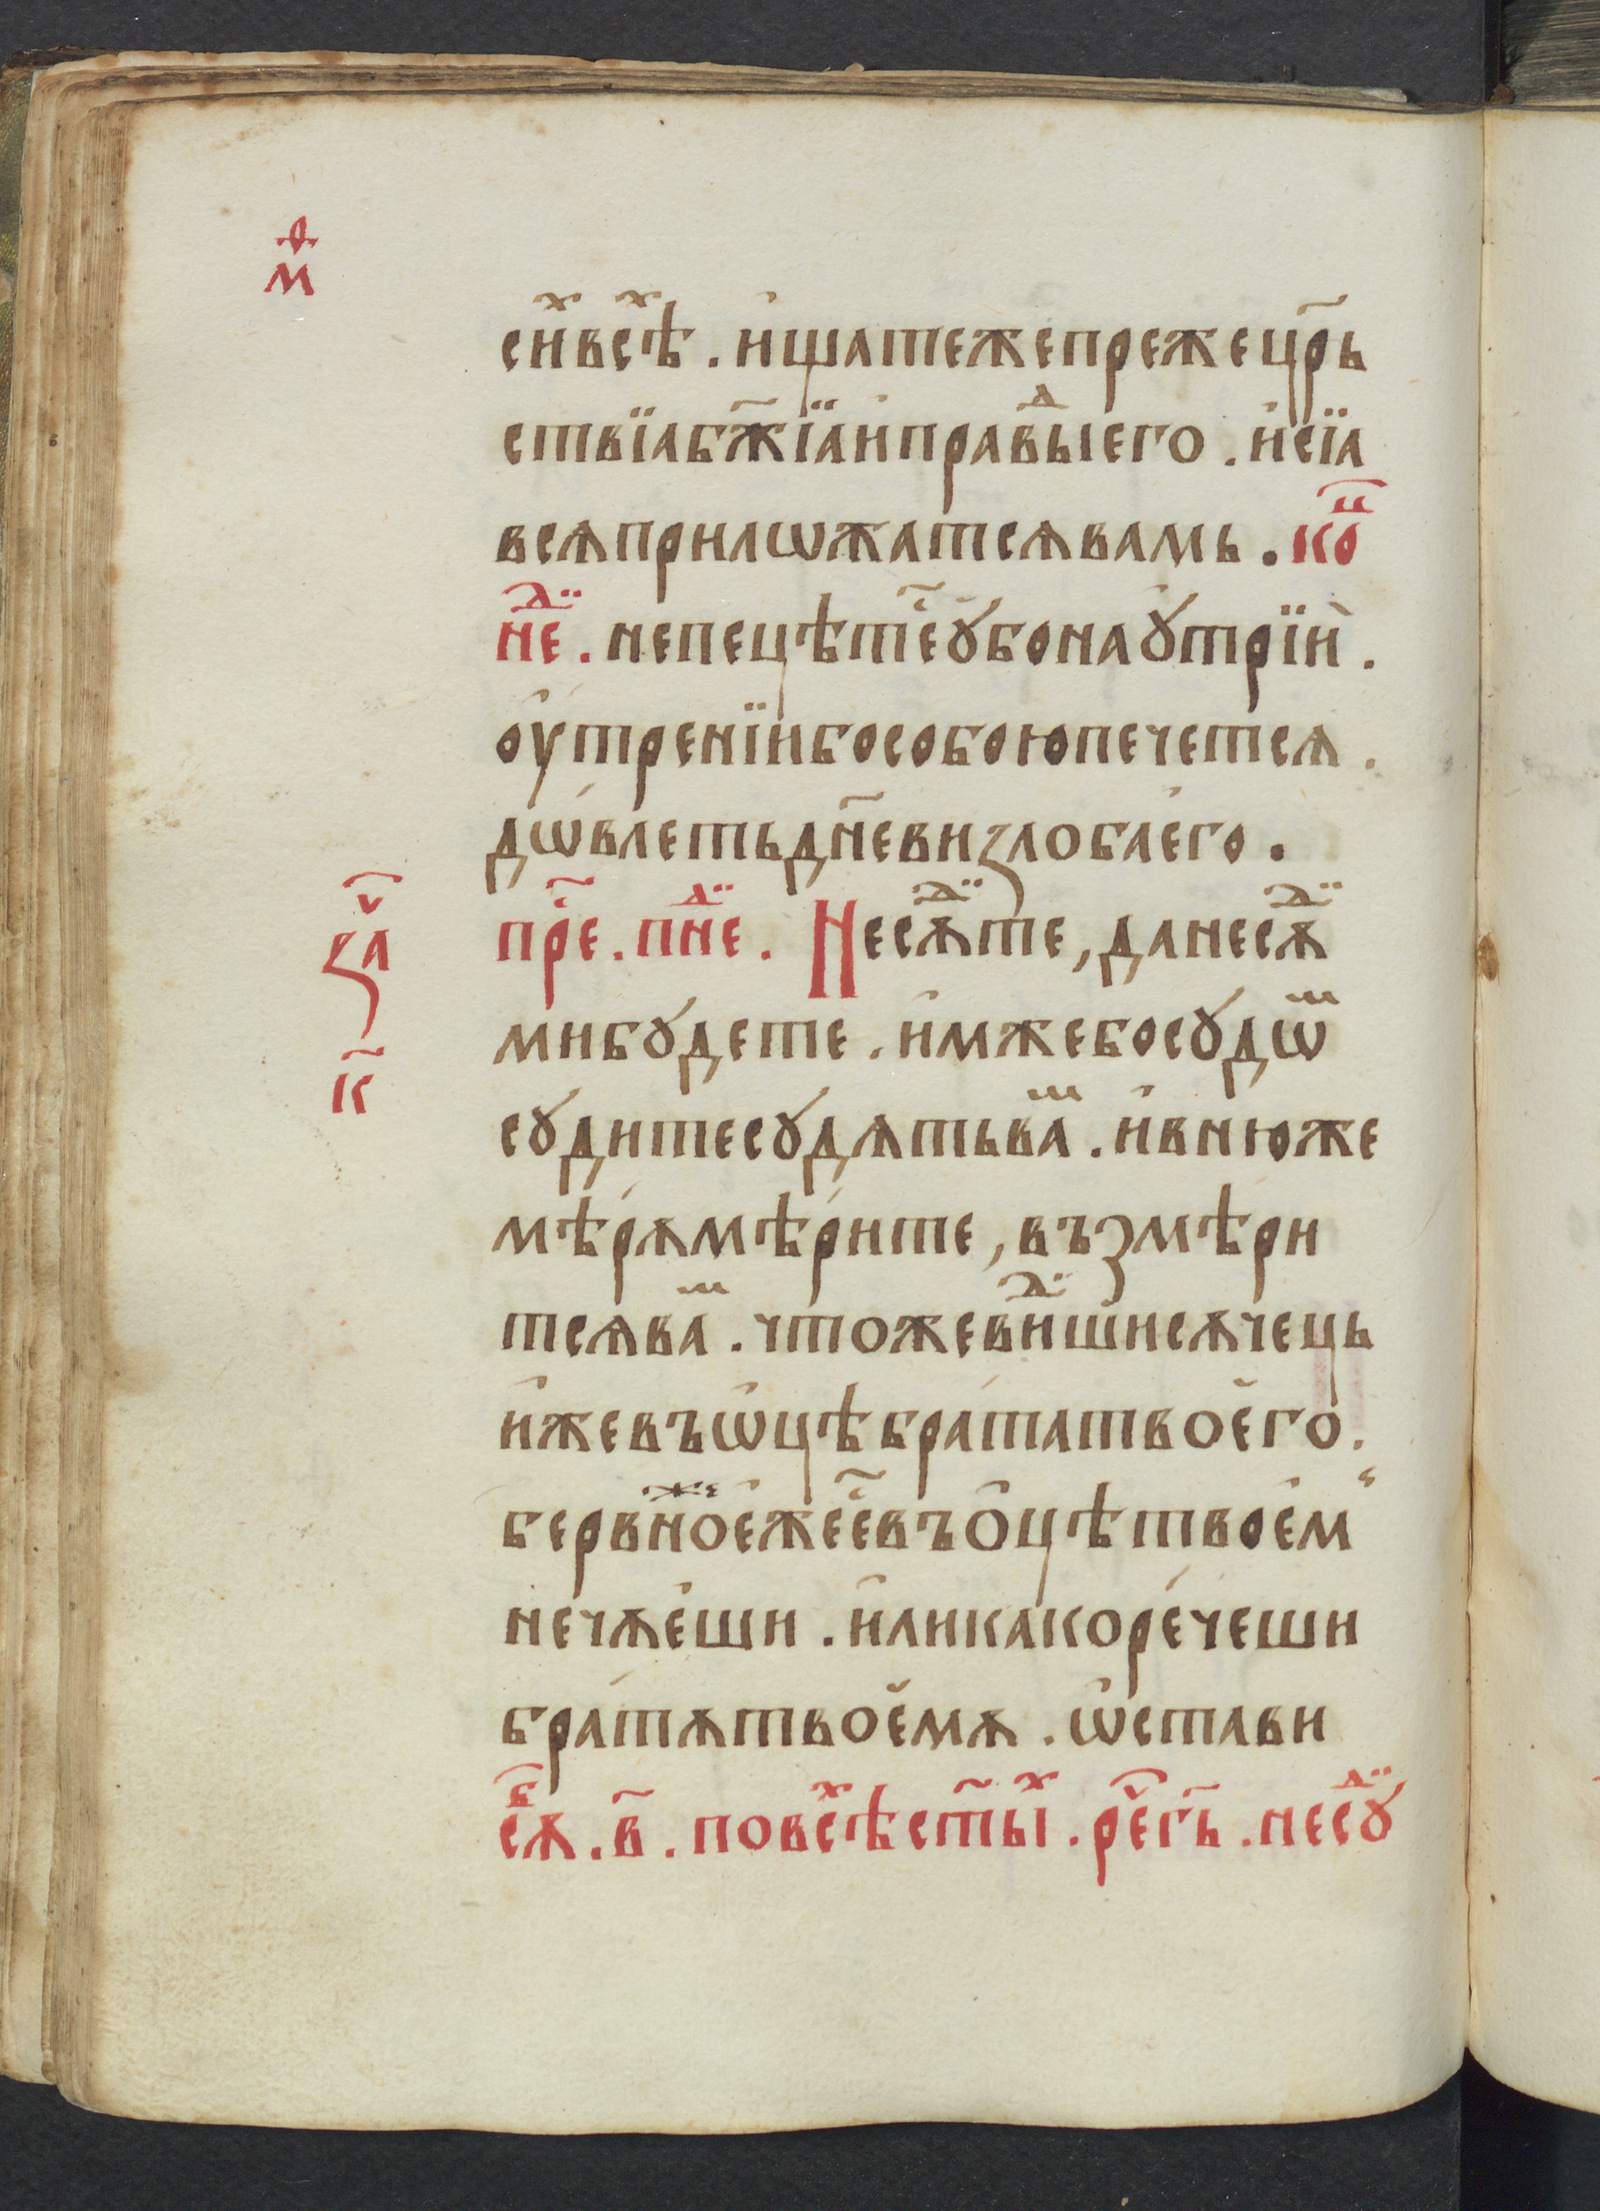 ф҃
м
сиⷯ всѣⷯ . и҆щатежепрежецр҃ь
ствїабж҃їаи҆праⷡ҇дыего . и҆сїа
всѧприлѡжатсѧвамь . коⷰ҇
неⷣ . непецѣтесⷭ҇ѹбонаꙋтрїи̇ .
оу҆тренїибособоюпечетсѧ .
дѡ́влетьдн҃евиꙁлобае҆го .
заⷱ҇
к҃
преⷭ҇ . пнеⷣ . Несѫⷣте , данесѫⷣ
мибꙋдете . и҆мжебосꙋдѡⷨ
сꙋдитесꙋдѧтьваⷨ . и҆внюже
мѣ́рѫмѣ́рите , възмѣри
тсѧваⷨ . чтожевиⷣшисѫчець
и҆жевъѡ҆цѣбра́татвоего .
бервноежⷤее҆въо҆цѣтвоемꙋ
нечѫе҆ши . и҆ликакоре́чеши
бра́тѫтвоемѫ . ѡ҆стави
сѫⷠ . в҃ . повсѣⷯст҃ыⷯ . реⷱ҇гь҃ . несꙋⷣ